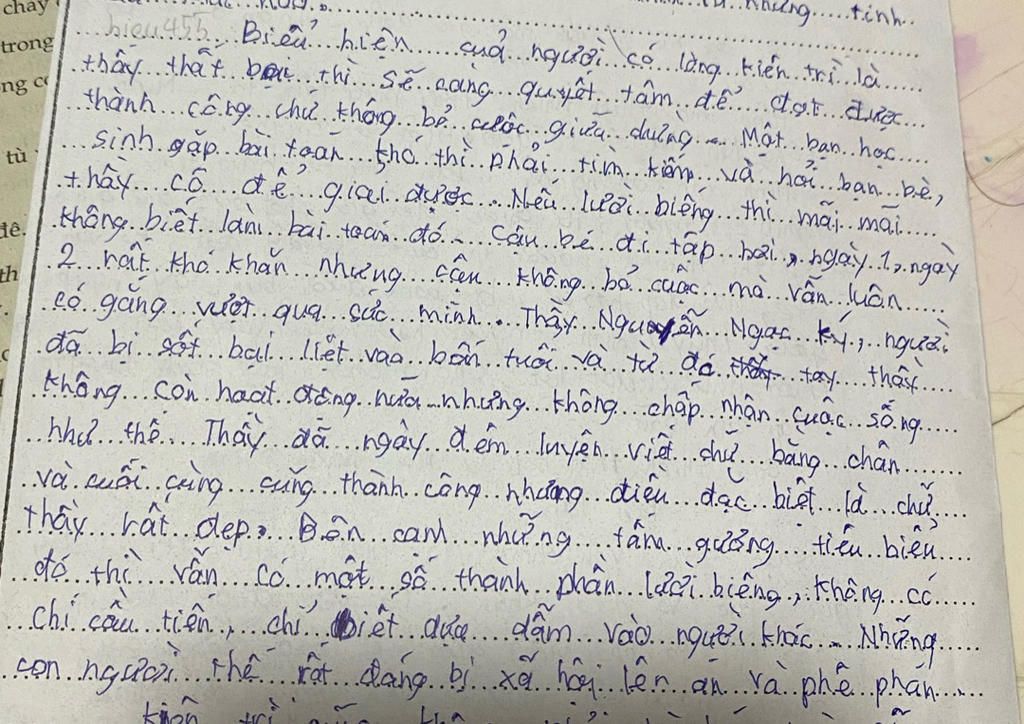 chay
trong
ng c
tù
đê
th
những tính
hieu455 Biểu hiện cuả người có lòng kiên trì là
thấy thất bại thì sẽ càng quyết tâm để đạt được
thành công chứ không bỏ cuộc giữa chừng. Một bạn học
sinh gặp bài toán khó thì phải tìm kiếm và hỏi bạn bè,
thầy cô để giải được. Nếu lười biếng thì mãi mãi
không biết làm bài toán đó. Cậu bé đi tập bơi, ngày 1, ngày
2 rất khó khăn nhưng cậu không bỏ cuộc mà vẫn luôn
cố gắng vượt qua sức mình. Thầy Nguyễn Ngọc Ký, người
đã bị sốt bại liệt vào bốn tuổi và từ đó tay thầy
không còn hoạt động nữa nhưng không chấp nhận cuộc sống
như thế. Thầy đã ngày đêm luyện viết chữ bằng chân
và cuối cùng cũng thành công nhưng điều đặc biệt là chữ
thầy rất đẹp. Bên cạnh những tấm gương tiêu biểu
đó thì vẫn có một số thành phần lười biếng, không có
chí cầu tiến, chỉ biết dựa dẫm vào người khác. Những
con người thế rất đáng bị xã hội lên án và phê phán
kiên trì